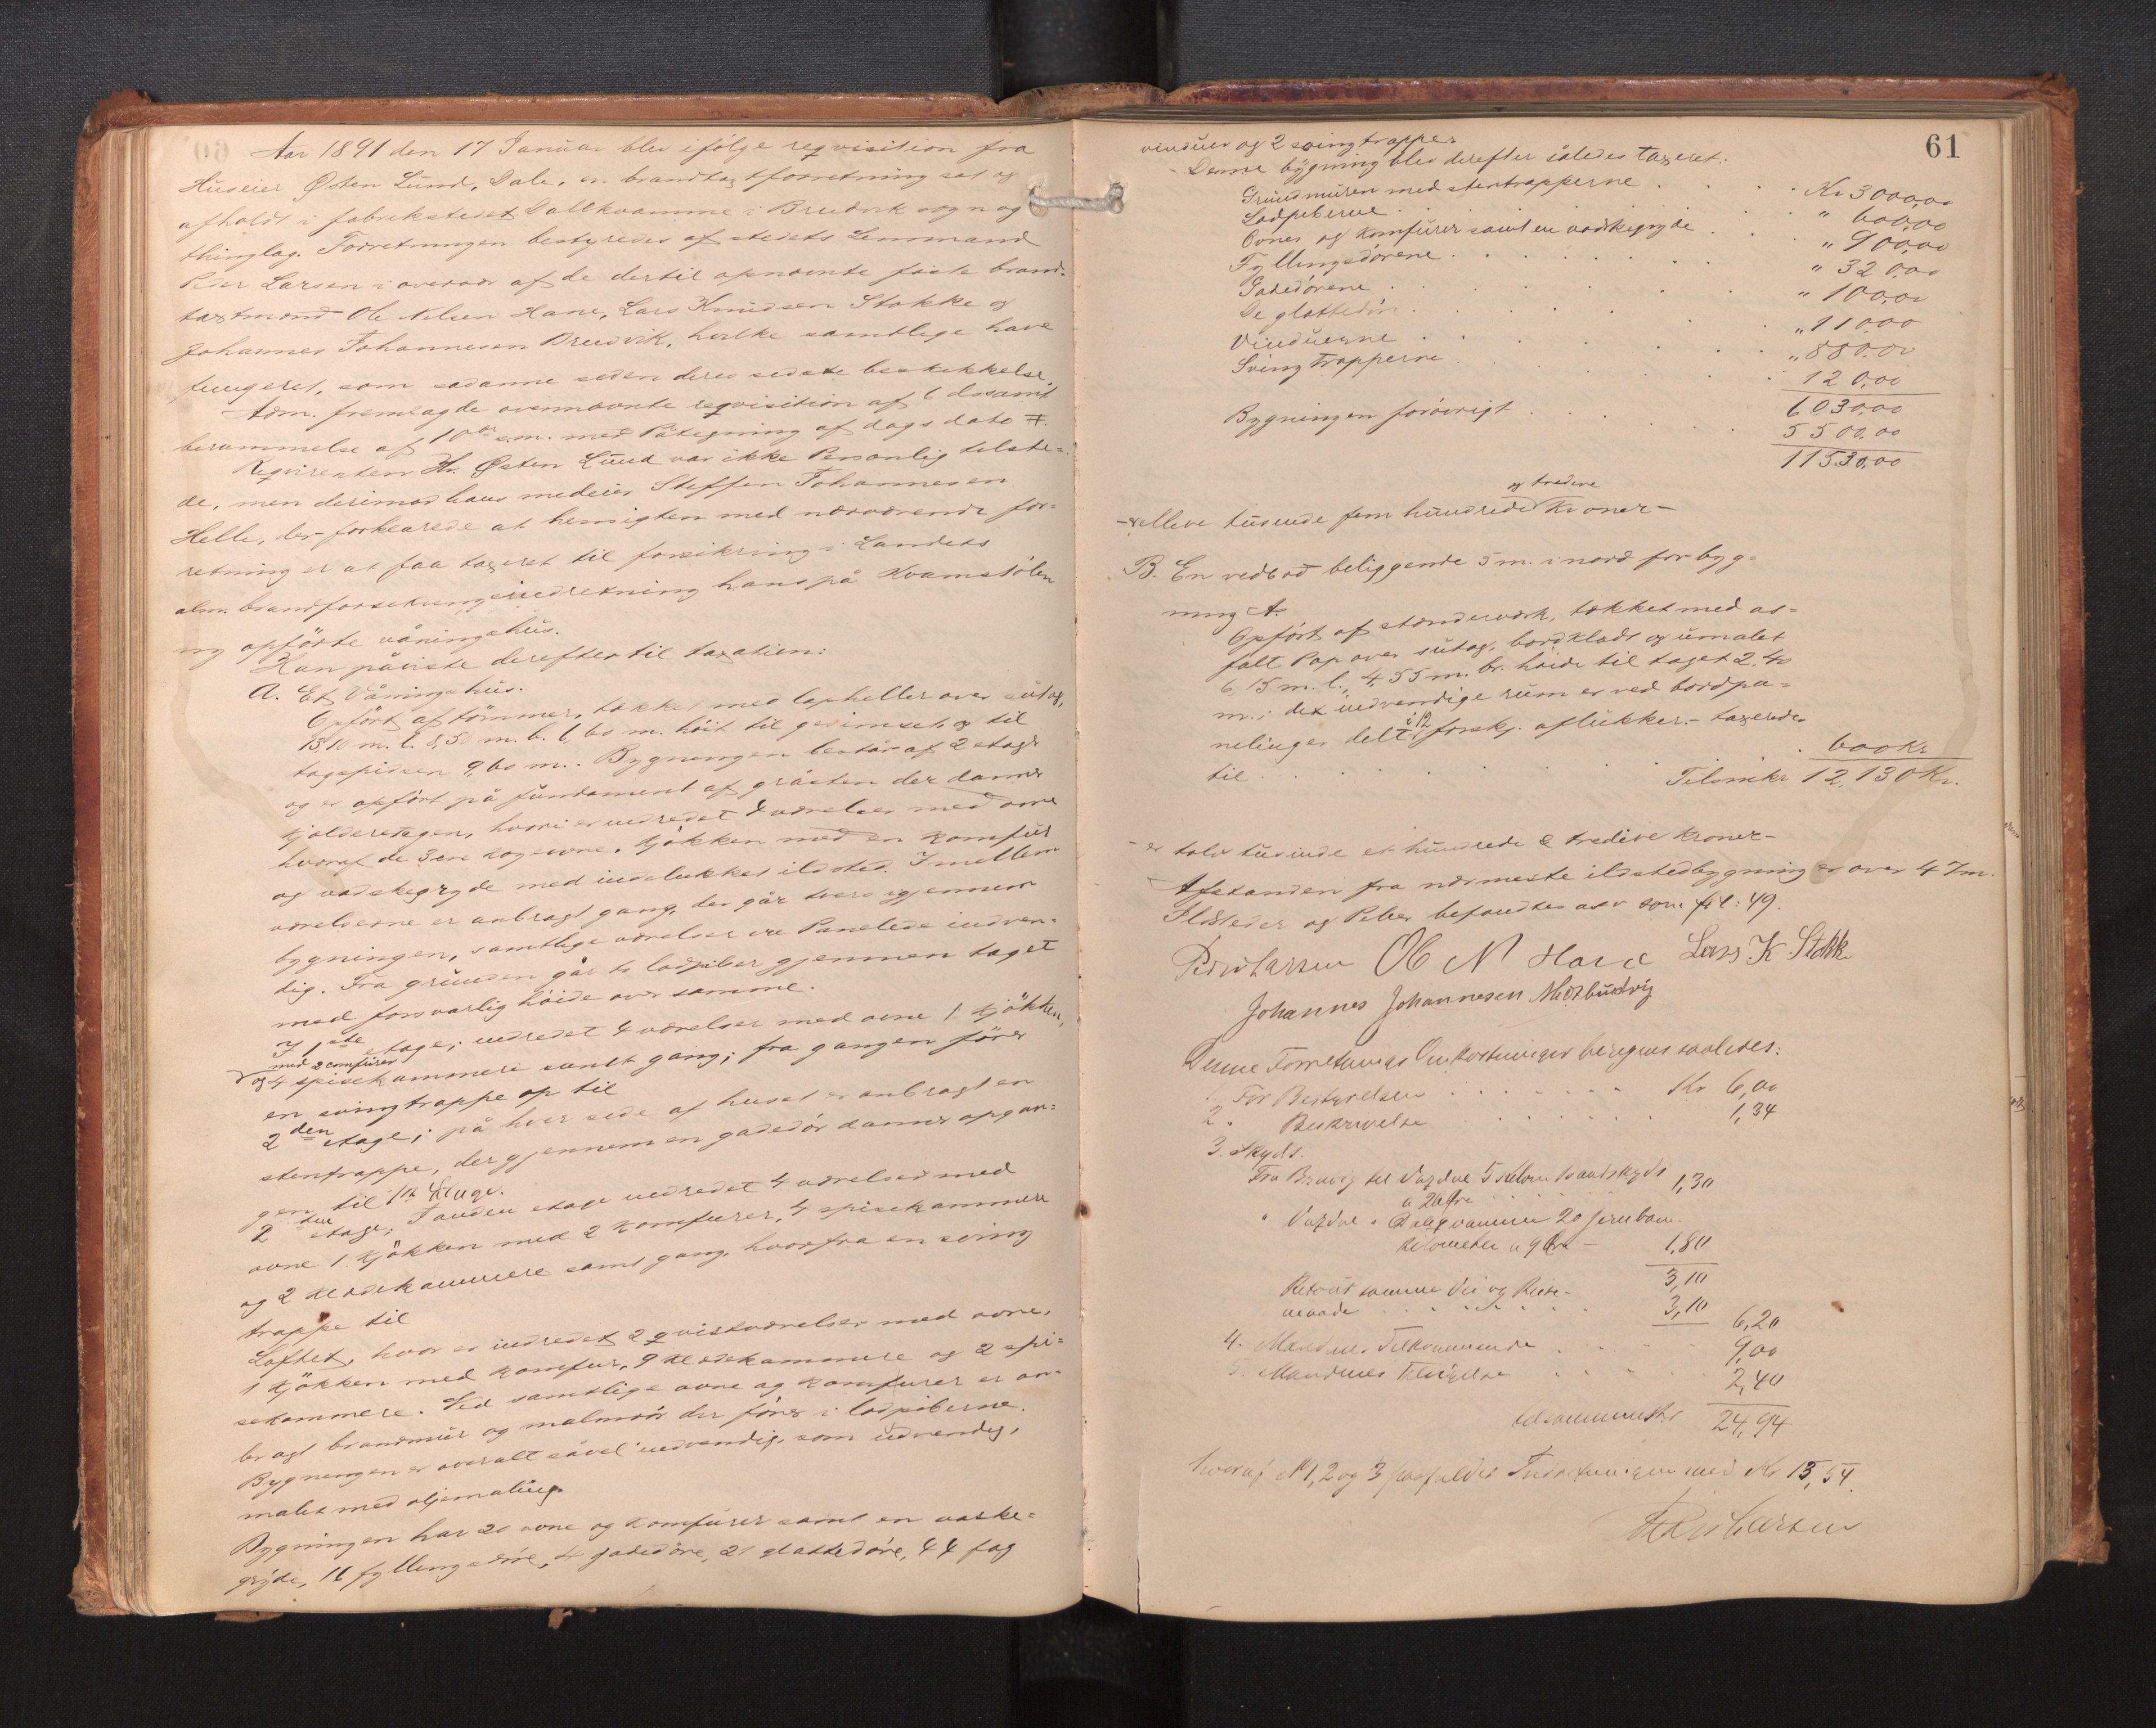 Aar 1891 den 17 Januar blev ifølge reqvisition fra
Huseier Østen Lund, Dale, en brandtaxtforretning sat og
afholdt i fabrikstedet Dallkvamme i Bruvik sogn og
thinglag. Forretningen bestyredes af stedets Lensmand
Peder Larsen i overvær af de dertil opnævnte faste brand-
taxtmænd Ole Nilsen Hane, Lars Knudsen Stokke og
Johannes Johannesen Bruvik, hvilke samtlige have
fungeret, som sådanne siden deres sidste beskikkelse.
Adm. fremlagde ovennævnte reqvisition af 6 ds samt
berammelse af 10de s.m. med Påtegning af dags dato #.
Reqvirenten Hr. Østen Lund var ikke Personlig tilste-
de, men derimod hans medeier Steffen Johannesen
Helle, der forklarede at hensigten med nærværende for-
retning er at faa taxeret til forsikring i Landets
alm. brandforsikringsindretning hans på Kvamstølen
ny opførte våningshus.
Han påviste derefter til taxation:
A. Et Våningshus.
Opført af tømmer, tækket med lapheller over sutag,
15,10 m. l. 8,50 m. b. 6,60 m. høit til gesimset og til
tagspidsen 9,60 m.. Bygningen består af 2 etager
og er opført på fundament af gråsten der danner
kjælderetagen, hvori er indredet 4 værelser med ovne
hvoraf de 3 ere kogeovne, kjøkken med en komfur
og vadskegryde med indelukket ildsted. Imellem
værelserne er anbragt gang, der går tvers igjennem
bygningen, samtlige værelser ere Panelede indven-
dig. Fra grunden går to ladpiber gjennem taget
med forsvarlig høide over samme.
I 1ste etage; indredet 4 værelser med ovne 1 kjøkken,
med 2 comfurer
og 4 spisekammere samt gang; fra gangen fører
en svingtrappe op til
2den etage; på hver side af huset er anbragt en
stentrappe, der gjennem en gadedør danner opgan-
gen til 1st Etage.
2den etage; I anden etage indredet 4 værelser med
ovne 1 kjøkken med 2 komfurer, 4 spisekammere
og 2 klædekammere samt gang, hvorfra en sving
trappe til
Loftet, hvor er indredet 2 qvistværelser med ovne,
1 kjøkken med komfur, 9 klædekammere og 2 spi-
sekammere. Ved samtlige ovne og komfurer er an-
bragt brandmur og malmrør der fører i ladpiberne.
Bygningen er overalt såvel indvendig, som udvendig,
malet med oljemaling.
Bygningen har 20 ovne og komfurer samt en vaske-
gryde, 16 fyllingsdøre, 4 gadedøre, 21 glattedøre, 44 fag
61
vinduer og 2 svingtrapper
Denne bygning blev derefter således taxeret:
Grundmuren med stentrapperne . . . Kr 3000,00
Ladpiberne . . . " 600,00
Ovnes og komfurer samt en vadskegryde . . . " 900,00
Fyllingsdørene . . . " 320,00
Gadedørene . . . " 100,00
De glattedør . . . " 110,00
Vinduerne . . . " 880,00
Svingtrapperne . . . 120,00
6030,00
Bygningen forøvrigt . . . 5500,00
11530,00
og tredive
- er elleve tusinde fem hundrede Kroner -
B. En vedbod beliggende 5 m. i nord for byg-
ning A.
Opført af stænderværk, tækket med as-
falt Pap over sutag, bordklædt og umalet
6,15 m. l., 4,55 m. br. høide til taget 2,40
m.; det indvendige rum er ved bordpa-
nelinger delt i 12 forskj. aflukker. - taxeredes
til . . . 600 Kr
Tilsmkr 12,130 Kr.
- er tolv tusinde et hundrede & tredive kroner -
Afstanden fra nærmeste ildstedbygning er over 47m.
Ildsteder og Piber befandtes osv som fol: 49.
Peder Larsen Ole N Hane Lars K Stokke
Johannes Johannesen Midtbruvig
Denne Forretnings Omkostninger beregnes saaledes:
1. For Bestyrelsen . . . Kr 6,00
2 " Beskrivelse . . . 1,34
3. Skyds.
Fra Bruvig til Vaxdal 5 kilom Vandskyds
a 26 Øre . . . 1,30
" Vaxdal " Dalegvammen 20 jernban.
kilometer a 9 Øre - 1,80
3,10
Retour samme Vei og Reise-
maade . . . 3,10 6,20
4. Mændenes Tilkommende . . . 9,00
5. Mændenes . . . 2,40
tilsammen Kr 24,94
hvoraf No 1, 2 og 3 godtgjøres Indretningen med Kr 13,54.
Peder Larsen